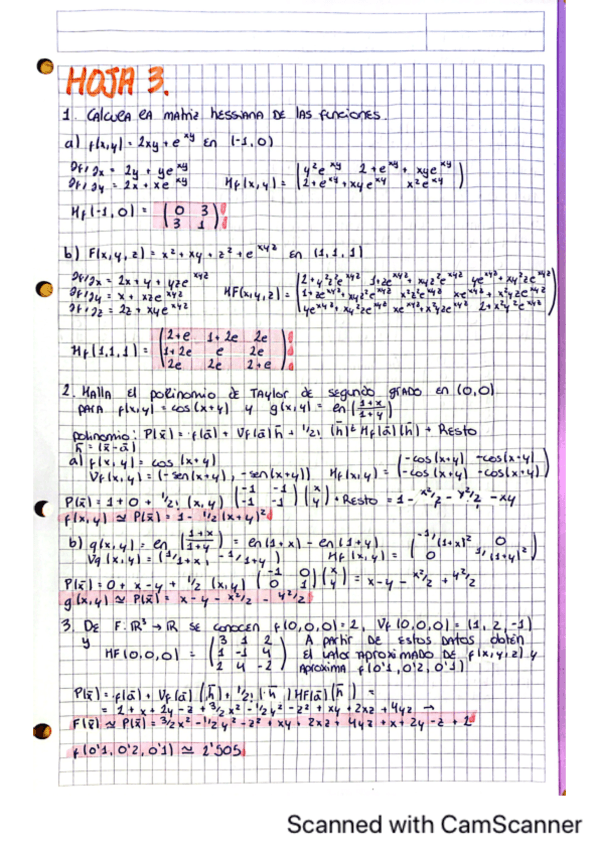 HOJA 3.
1. CALCULA LA MATRIZ HESSIANA DE LAS FUNCIONES.
a) f(x,y) = 2xy + e^xy EN (-1,0)
∂f/∂x = 2y + ye^xy
∂f/∂y = 2x + xe^xy
Hf(x,y) = ( y²e^xy 2+e^xy+xye^xy
2+e^xy+xye^xy x²e^xy )
Hf(-1,0) = ( 0 3
3 1 )
b) F(x,y,z) = x² + xy + z² + e^xyz EN (1,1,1)
∂f/∂x = 2x + y + yze^xyz
∂f/∂y = x + xze^xyz
∂f/∂z = 2z + xye^xyz
HF(x,y,z) = ( 2+y²z²e^xyz 1+ze^xyz+xyz²e^xyz ye^xyz+xy²ze^xyz
1+ze^xyz+xyz²e^xyz x²z²e^xyz xe^xyz+x²yze^xyz
ye^xyz+xy²ze^xyz xe^xyz+x²yze^xyz 2+x²y²e^xyz )
Hf(1,1,1) = ( 2+e 1+2e 2e
1+2e e 2e
2e 2e 2+e )
2. HALLA EL POLINOMIO DE TAYLOR DE SEGUNDO GRADO EN (0,0)
PARA f(x,y) = cos(x+y) Y g(x,y) = ln(1+x/1+y)
POLINOMIO: P(x̄) = f(ā) + ∇f(ā)h̄ + 1/2! (h̄)ᵗ Hf(ā)(h̄) + RESTO
h̄ = (x̄-ā)
a) f(x,y) = cos (x+y)
∇f(x,y) = (-sen(x+y), -sen(x+y)) Hf(x,y) = ( -cos(x+y) -cos(x+y)
-cos(x+y) -cos(x+y) )
P(x̄) = 1+0+ 1/2! (x,y) ( -1 -1
-1 -1 ) ( x
y ) + Resto = 1 - x²/2 - y²/2 - xy
f(x,y) ≃ P(x̄) = 1 - 1/2 (x+y)²
b) g(x,y) = ln (1+x/1+y) = ln(1+x) - ln(1+y)
∇g(x,y) = (1/1+x, -1/1+y) Hf(x,y) = ( -1/(1+x)² 0
0 1/(1+y)² )
P(x̄) = 0 + x-y + 1/2 (x,y) ( -1 0
0 1 ) ( x
y ) = x-y - x²/2 + y²/2
g(x,y) ≃ P(x̄) = x-y - x²/2 - y²/2
3. DE F: ℝ³ → ℝ SE CONOCEN f(0,0,0) = 2, ∇f(0,0,0) = (1,2,-1)
Y HF(0,0,0) = ( 3 1 2
1 -1 4
2 4 -2 ) A PARTIR DE ESTOS DATOS OBTÉN
EL VALOR APROXIMADO DE f(x,y,z) Y
APROXIMA f(0'1,0'2,0'1)
P(x̄) = f(ā) + ∇f(ā)(h̄) + 1/2! (h̄) HF(ā)(h̄) =
= 2 + x + 2y - z + 3/2x² - 1/2y² - z² + xy + 2xz + 4yz →
F(x̄) ≃ P(x̄) = 3/2x² - 1/2y² - z² + xy + 2xz + 4yz + x + 2y - z + 2
f(0'1, 0'2, 0'1) ≃ 2'505
Scanned with CamScanner